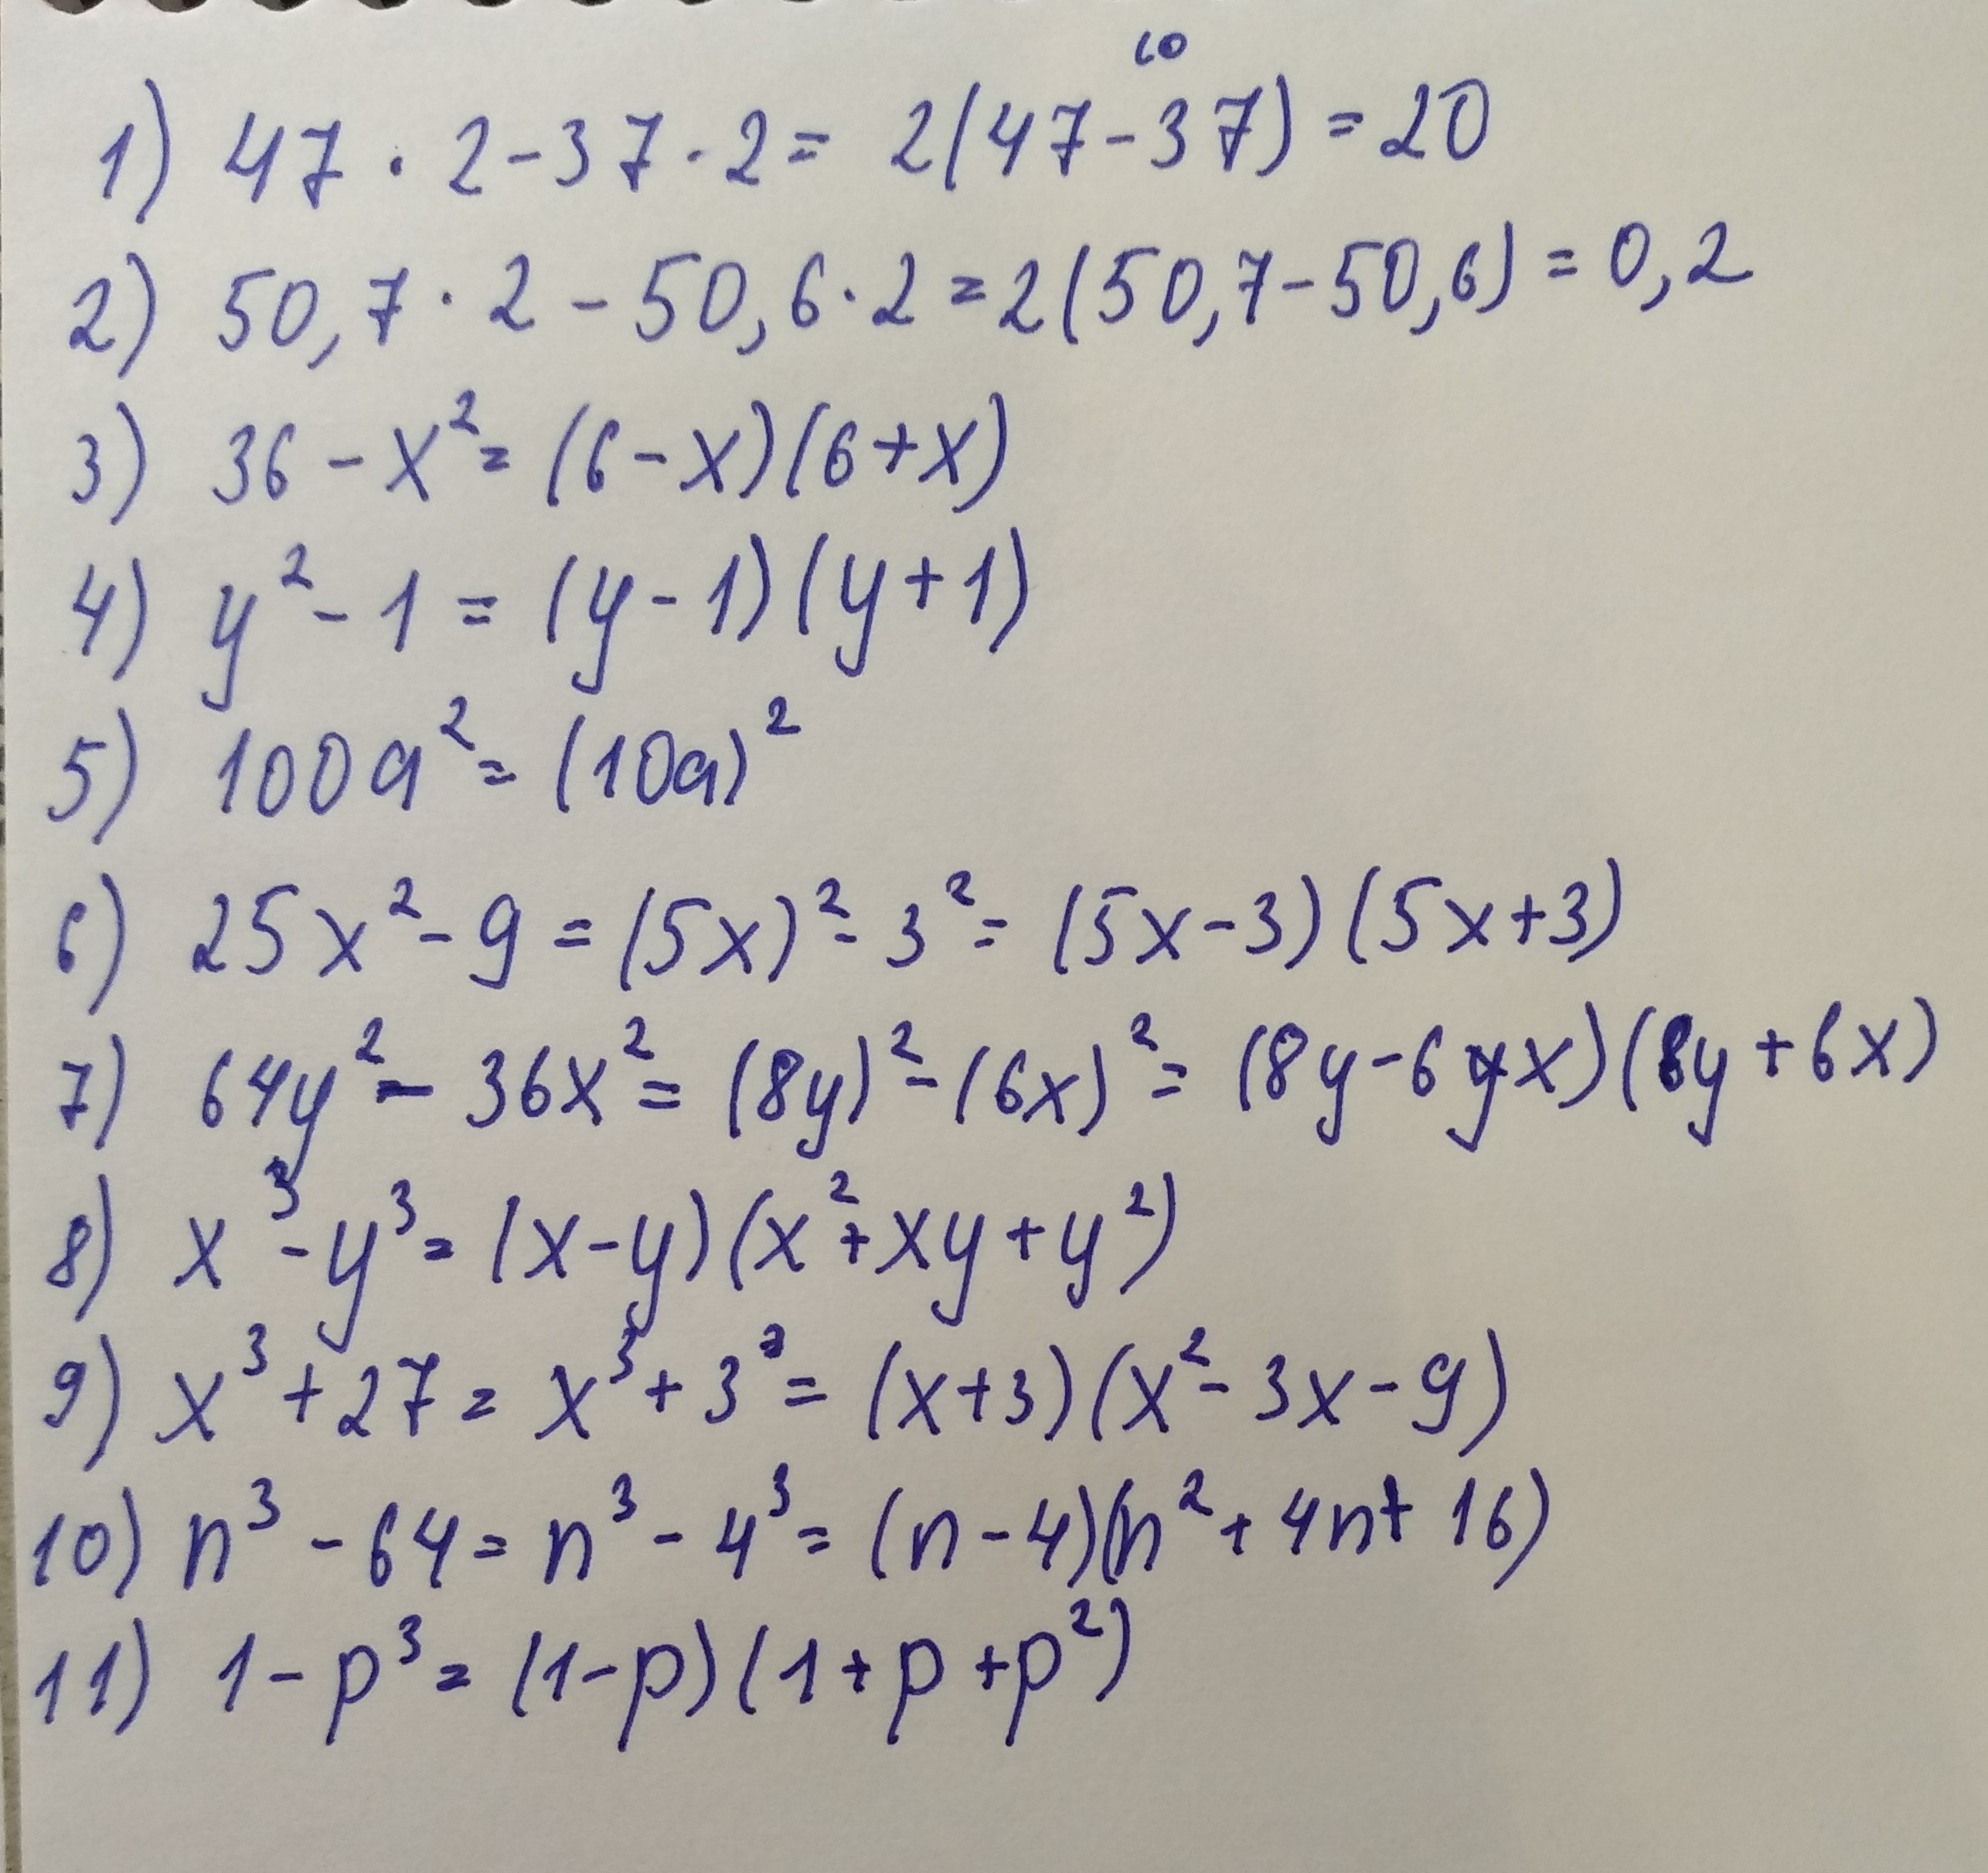 10
1) 47 · 2 - 37 · 2 = 2(47 - 37) = 20
2) 50,7 · 2 - 50,6 · 2 = 2(50,7 - 50,6) = 0,2
3) 36 - x² = (6 - x)(6 + x)
4) y² - 1 = (y - 1)(y + 1)
5) 100a² = (10a)²
6) 25x² - 9 = (5x)² - 3² = (5x - 3)(5x + 3)
7) 64y² - 36x² = (8y)² - (6x)² = (8y - 6x)(8y + 6x)
8) x³ - y³ = (x - y)(x² + xy + y²)
9) x³ + 27 = x³ + 3³ = (x + 3)(x² - 3x - 9)
10) n³ - 64 = n³ - 4³ = (n - 4)(n² + 4n + 16)
11) 1 - p³ = (1 - p)(1 + p + p²)